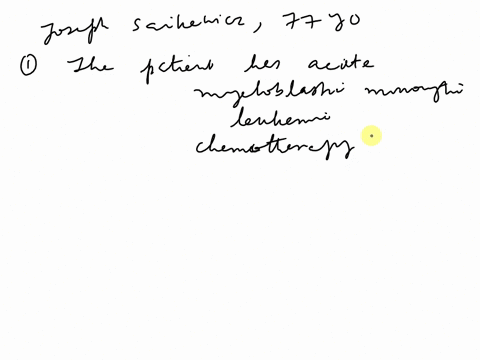 Joseph Saikewicz, 77 yo
① The patient has acute
myeloblastic monocytic
leukemia
chemotherapy